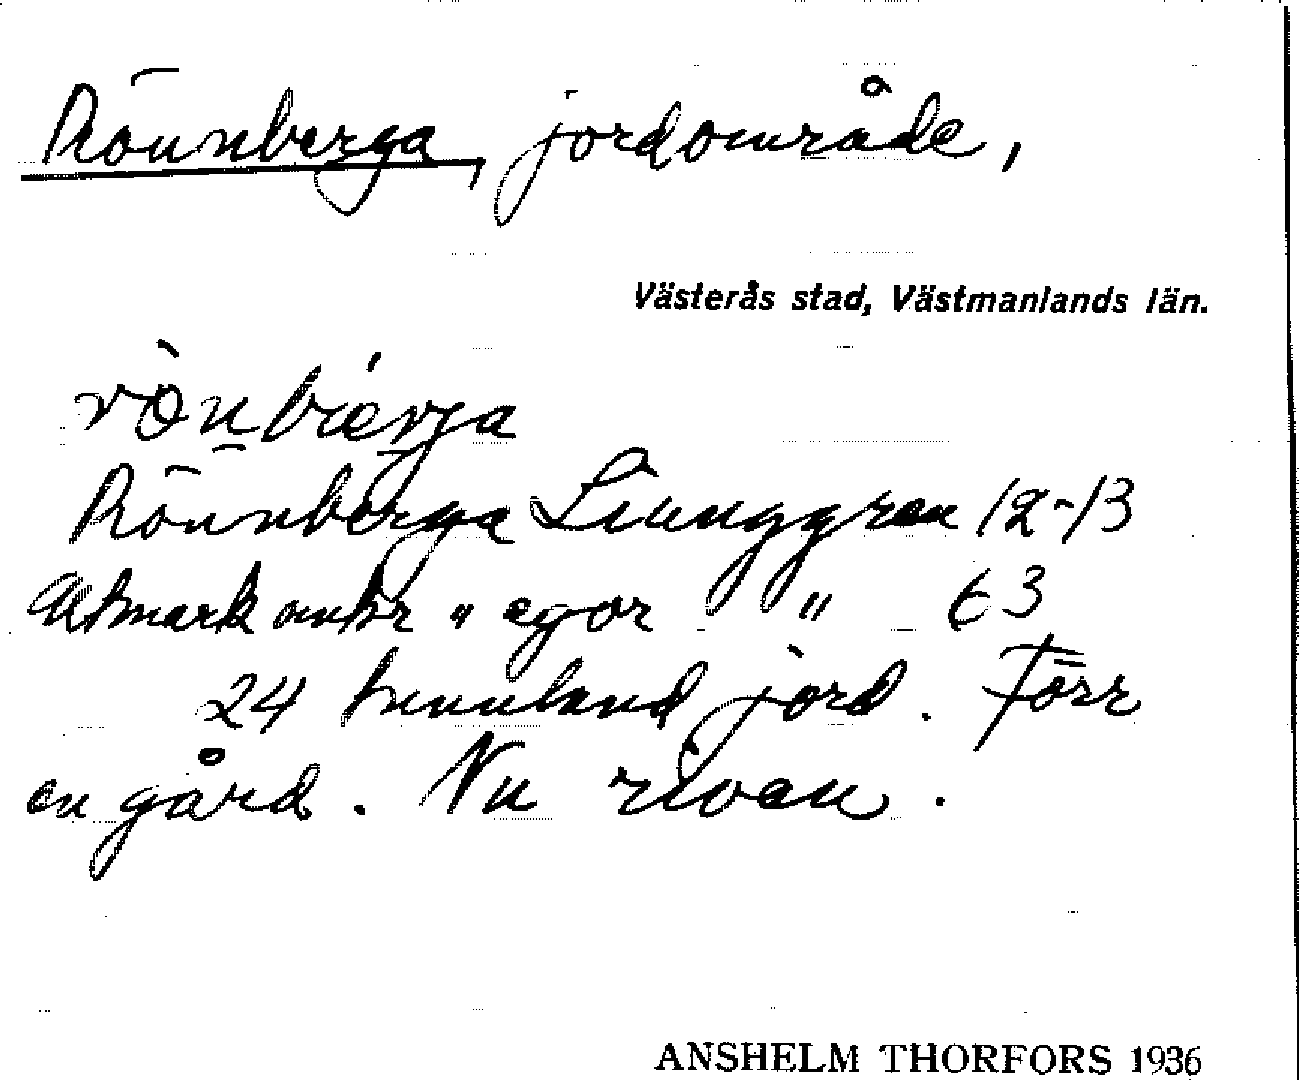 Rönnberga, jordområde,
Västerås stad, Västmanlands län.
rö̀nbiérja
Rönnberga Ljunggren 12-13
Utmark " egor " 63
24 tunnland jord. Förr
en gård. Nu riven.
ANSHELM THORFORS 1936